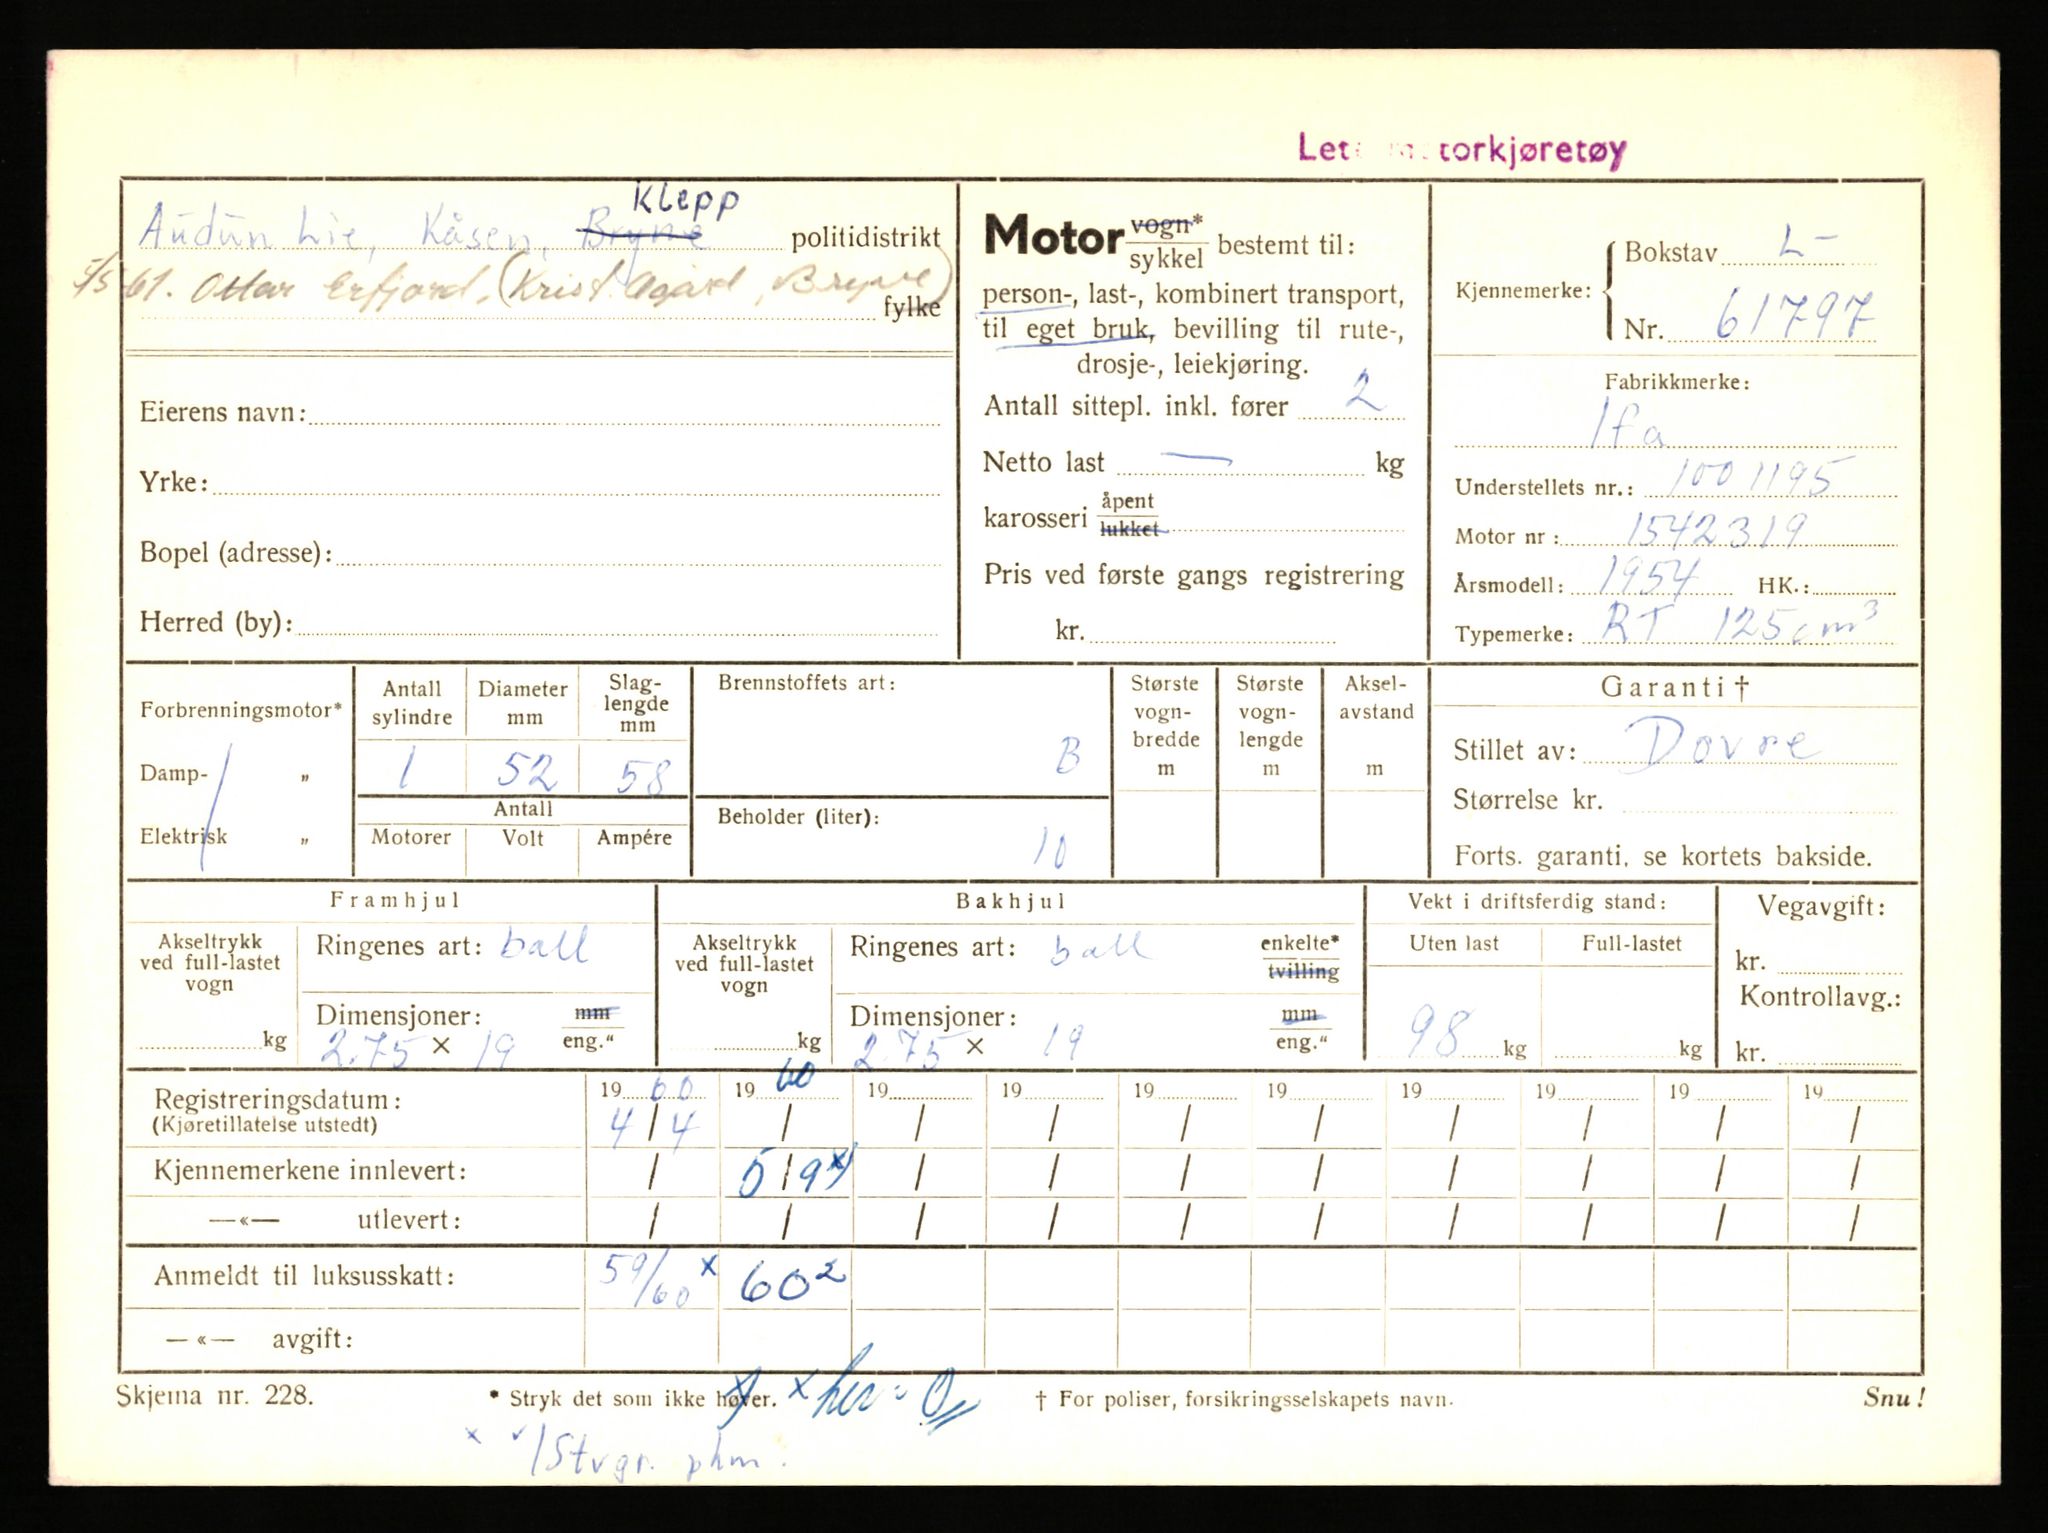 Let torkjøretøy
Klepp
Audun Lie, Kåsen, Bryne politidistrikt
5/5 61. Ottar Erfjord, (Krist. Ogård, Bryne)
fylke
Eierens navn:
Yrke:
Bopel (adresse):
Herred (by):
Motor vogn* sykkel bestemt til:
person-, last-, kombinert transport,
til eget bruk, bevilling til rute-,
drosje-, leiekjøring.
Antall sittepl. inkl. fører 2
Netto last — kg
karosseri åpent lukket
Pris ved første gangs registrering
kr.
Kjennemerke: Bokstav L-
Nr. 61797
Fabrikkmerke:
Ifa
Understellets nr.: 1001195
Motor nr: 1542319
Årsmodell: 1954 HK.:
Typemerke: RT 125 cm³
Forbrenningsmotor*
Damp- „
Elektrisk „
Antall sylindre Diameter mm Slag-lengde mm
1 52 58
Antall
Motorer Volt Ampére
Brennstoffets art:
B
Beholder (liter):
10
Største vogn-bredde m
Største vogn-lengde m
Aksel-avstand m
Garanti †
Stillet av: Dovre
Størrelse kr.
Forts. garanti, se kortets bakside.
Framhjul
Akseltrykk ved full-lastet vogn
kg
Ringenes art: ball
Dimensjoner: mm
2.75 × 19 eng.“
Bakhjul
Akseltrykk ved full-lastet vogn
kg
Ringenes art: ball enkelte* tvilling
Dimensjoner: mm
2.75 × 19 eng.“
Vekt i driftsferdig stand:
Uten last Full-lastet
98 kg kg
Vegavgift:
kr.
Kontrollavg.:
kr.
Registreringsdatum: 19 60 19 60 19 19 19 19 19 19 19 19
(Kjøretillatelse utstedt) 4 / 4 / / / / / / / / /
Kjennemerkene innlevert: / 5 / 9 x) / / / / / / / /
—«— utlevert: / / / / / / / / / /
Anmeldt til luksusskatt: 59/60 x 60²
—«— avgift:
Skjema nr. 228. * Stryk det som ikke høver. x her = 0 † For poliser, forsikringsselskapets navn. Snu!
x